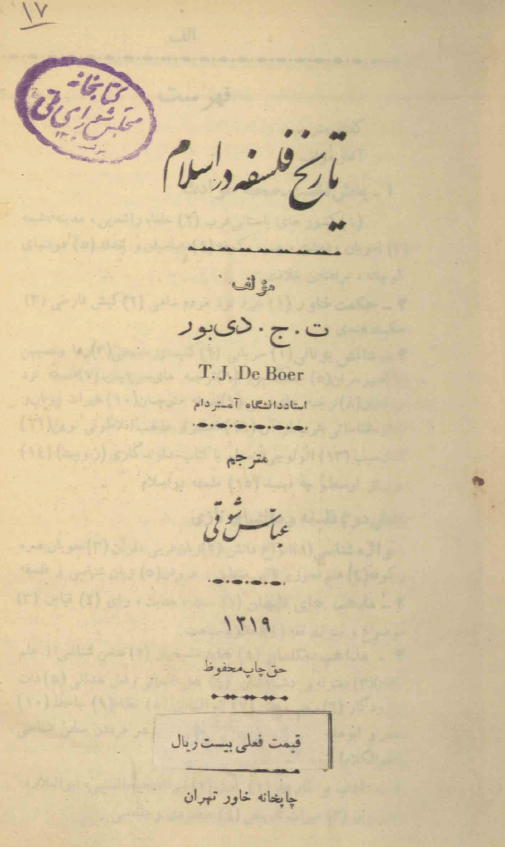 ۱۷
کتابخانه
مجلس شورای ملی
تاریخ فلسفه در اسلام
مؤلف
ت . ج . دی‌بور
T. J. De Boer
استاد دانشگاه آمستردام
مترجم
عباس شوقی
۱۳۱۹
حق چاپ محفوظ
قیمت فعلی بیست ریال
چاپخانه خاور تهران